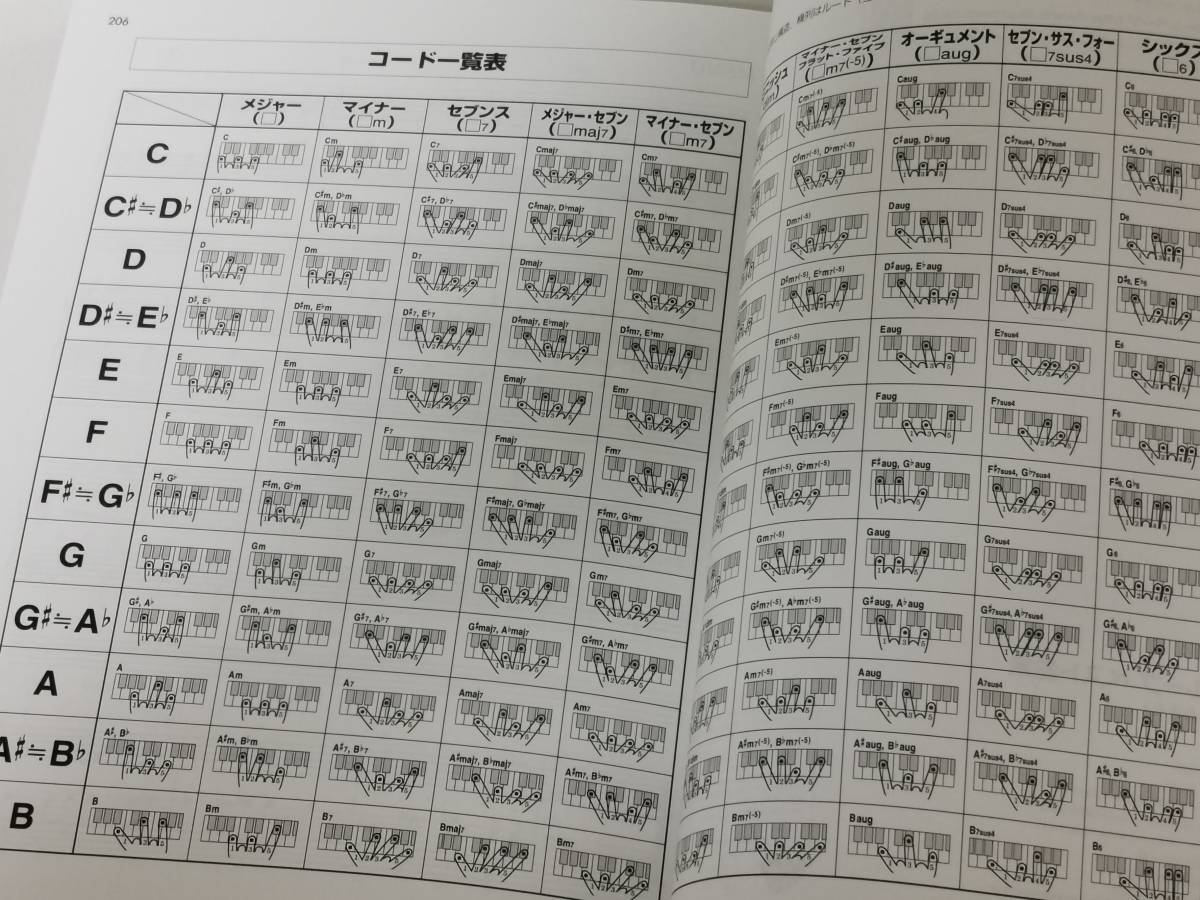 206
コード一覧表
メジャー マイナー セブンス メジャー・セブン マイナー・セブン
(□) (□m) (□7) (□maj7) (□m7)
マイナー・セブン
フラット・ファイブ オーギュメント セブン・サス・フォー シックス
(□m7(-5)) (□aug) (□7sus4) (□6)
C
C Cm C7 Cmaj7 Cm7 Cm7(-5) Caug C7sus4 C6
C♯≒D♭
C♯, D♭ C♯m, D♭m C♯7, D♭7 C♯maj7, D♭maj7 C♯m7, D♭m7 C♯m7(-5), D♭m7(-5) C♯aug, D♭aug C♯7sus4, D♭7sus4 C♯6, D♭6
D
D Dm D7 Dmaj7 Dm7 Dm7(-5) Daug D7sus4 D6
D♯≒E♭
D♯, E♭ D♯m, E♭m D♯7, E♭7 D♯maj7, E♭maj7 D♯m7, E♭m7 D♯m7(-5), E♭m7(-5) D♯aug, E♭aug D♯7sus4, E♭7sus4 D♯6, E♭6
E
E Em E7 Emaj7 Em7 Em7(-5) Eaug E7sus4 E6
F
F Fm F7 Fmaj7 Fm7 Fm7(-5) Faug F7sus4 F6
F♯≒G♭
F♯, G♭ F♯m, G♭m F♯7, G♭7 F♯maj7, G♭maj7 F♯m7, G♭m7 F♯m7(-5), G♭m7(-5) F♯aug, G♭aug F♯7sus4, G♭7sus4 F♯6, G♭6
G
G Gm G7 Gmaj7 Gm7 Gm7(-5) Gaug G7sus4 G6
G♯≒A♭
G♯, A♭ G♯m, A♭m G♯7, A♭7 G♯maj7, A♭maj7 G♯m7, A♭m7 G♯m7(-5), A♭m7(-5) G♯aug, A♭aug G♯7sus4, A♭7sus4 G♯6, A♭6
A
A Am A7 Amaj7 Am7 Am7(-5) Aaug A7sus4 A6
A♯≒B♭
A♯, B♭ A♯m, B♭m A♯7, B♭7 A♯maj7, B♭maj7 A♯m7, B♭m7 A♯m7(-5), B♭m7(-5) A♯aug, B♭aug A♯7sus4, B♭7sus4 A♯6, B♭6
B
B Bm B7 Bmaj7 Bm7 Bm7(-5) Baug B7sus4 B6